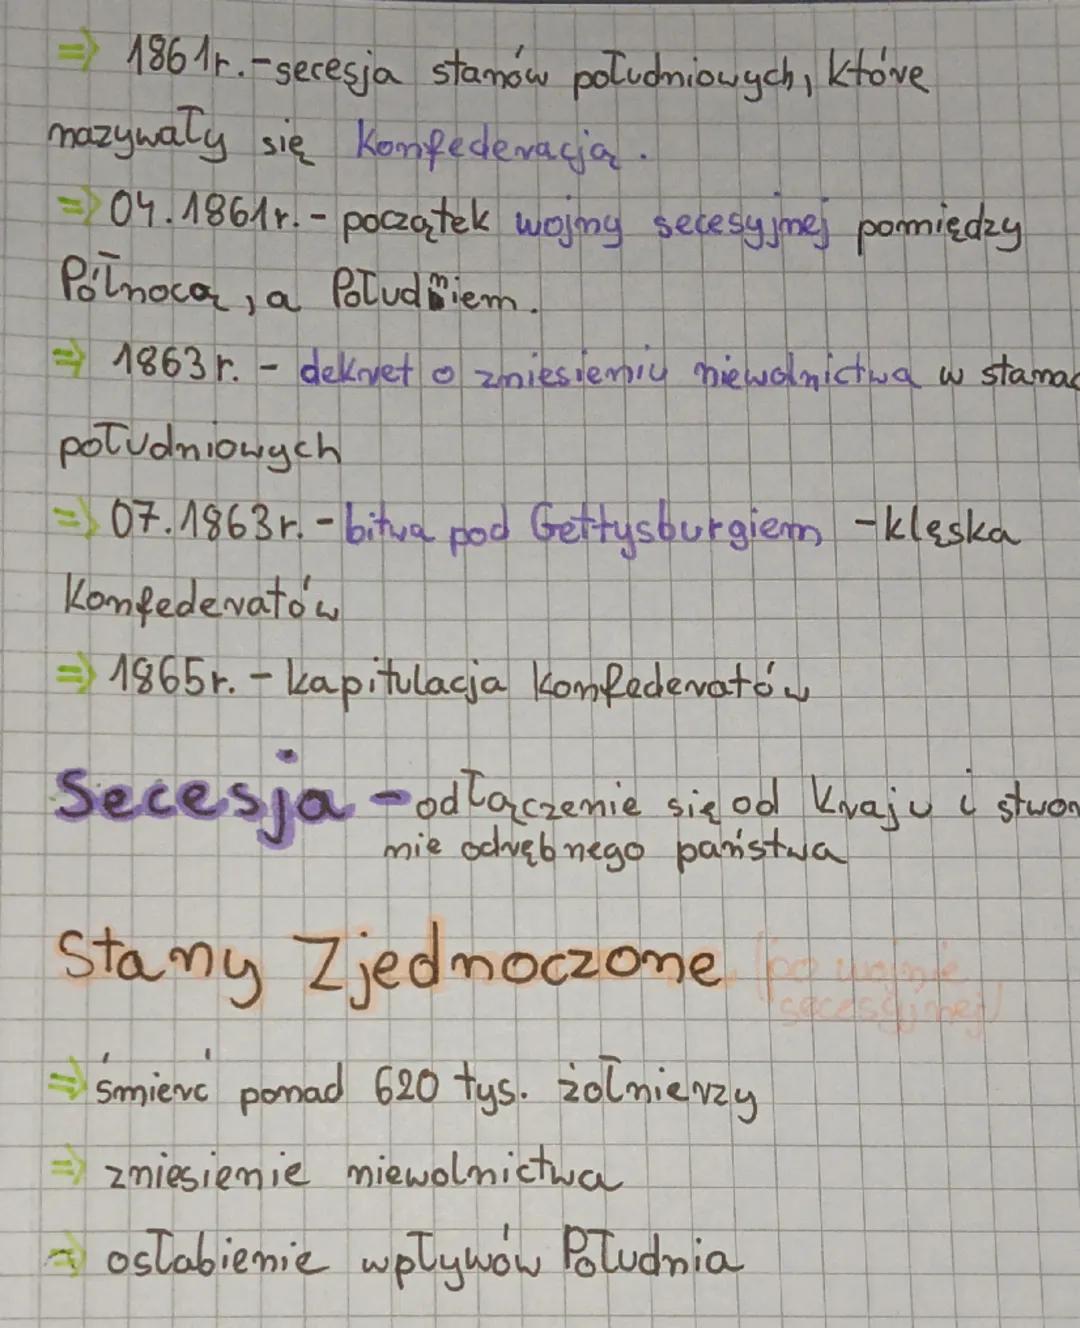 => 1861r. - secesja stanów południowych, które
nazywały się Konfederacją.
=> 04.1861r. - początek wojny secesyjnej pomiędzy
Północą, a Południem.
=> 1863r. - dekret o zniesieniu niewolnictwa w stanac
południowych
=> 07.1863r. - bitwa pod Gettysburgiem - klęska
Konfederatów
=> 1865r. - kapitulacja Konfederatów
Secesja - odłączenie się od kraju i stwor
nie odrębnego państwa
Stany Zjednoczone (po wojnie
secesyjnej)
=> śmierć ponad 620 tys. żołnierzy
=> zniesienie niewolnictwa
=> osłabienie wpływów Południa